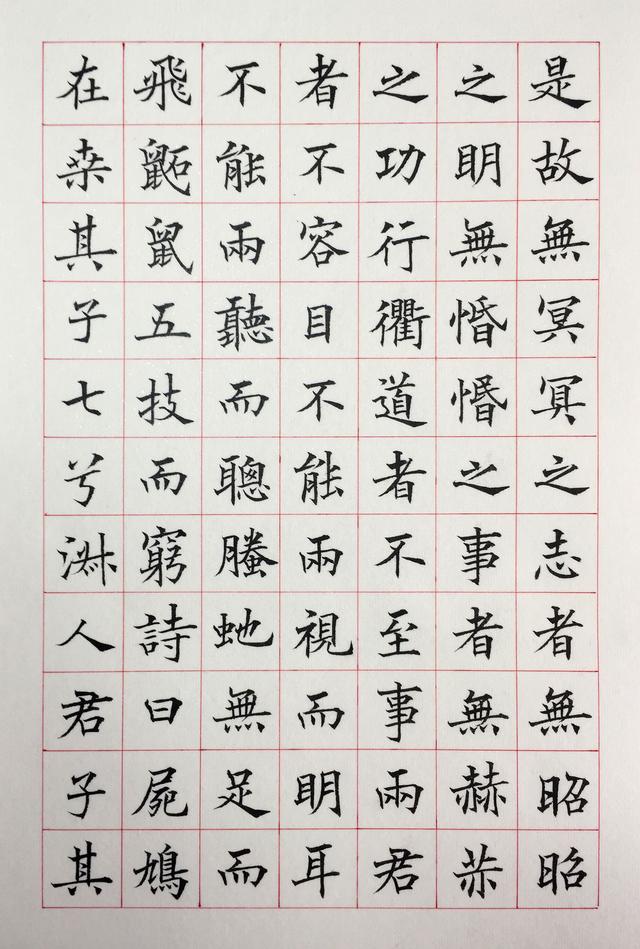 是故無冥冥之志者無昭昭
之明無惛惽之事者無赫赫
之功行衢道者不至事兩君
者不容目不能兩視而明耳
不能兩聽而聰螣虵無足而
飛鼫鼠五技而窮詩曰屍鳩
在桒其子七兮淑人君子其